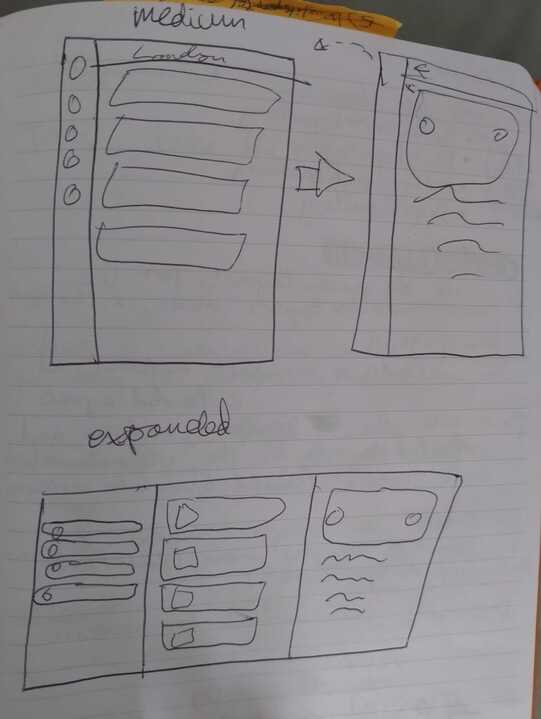 medium
London
expanded